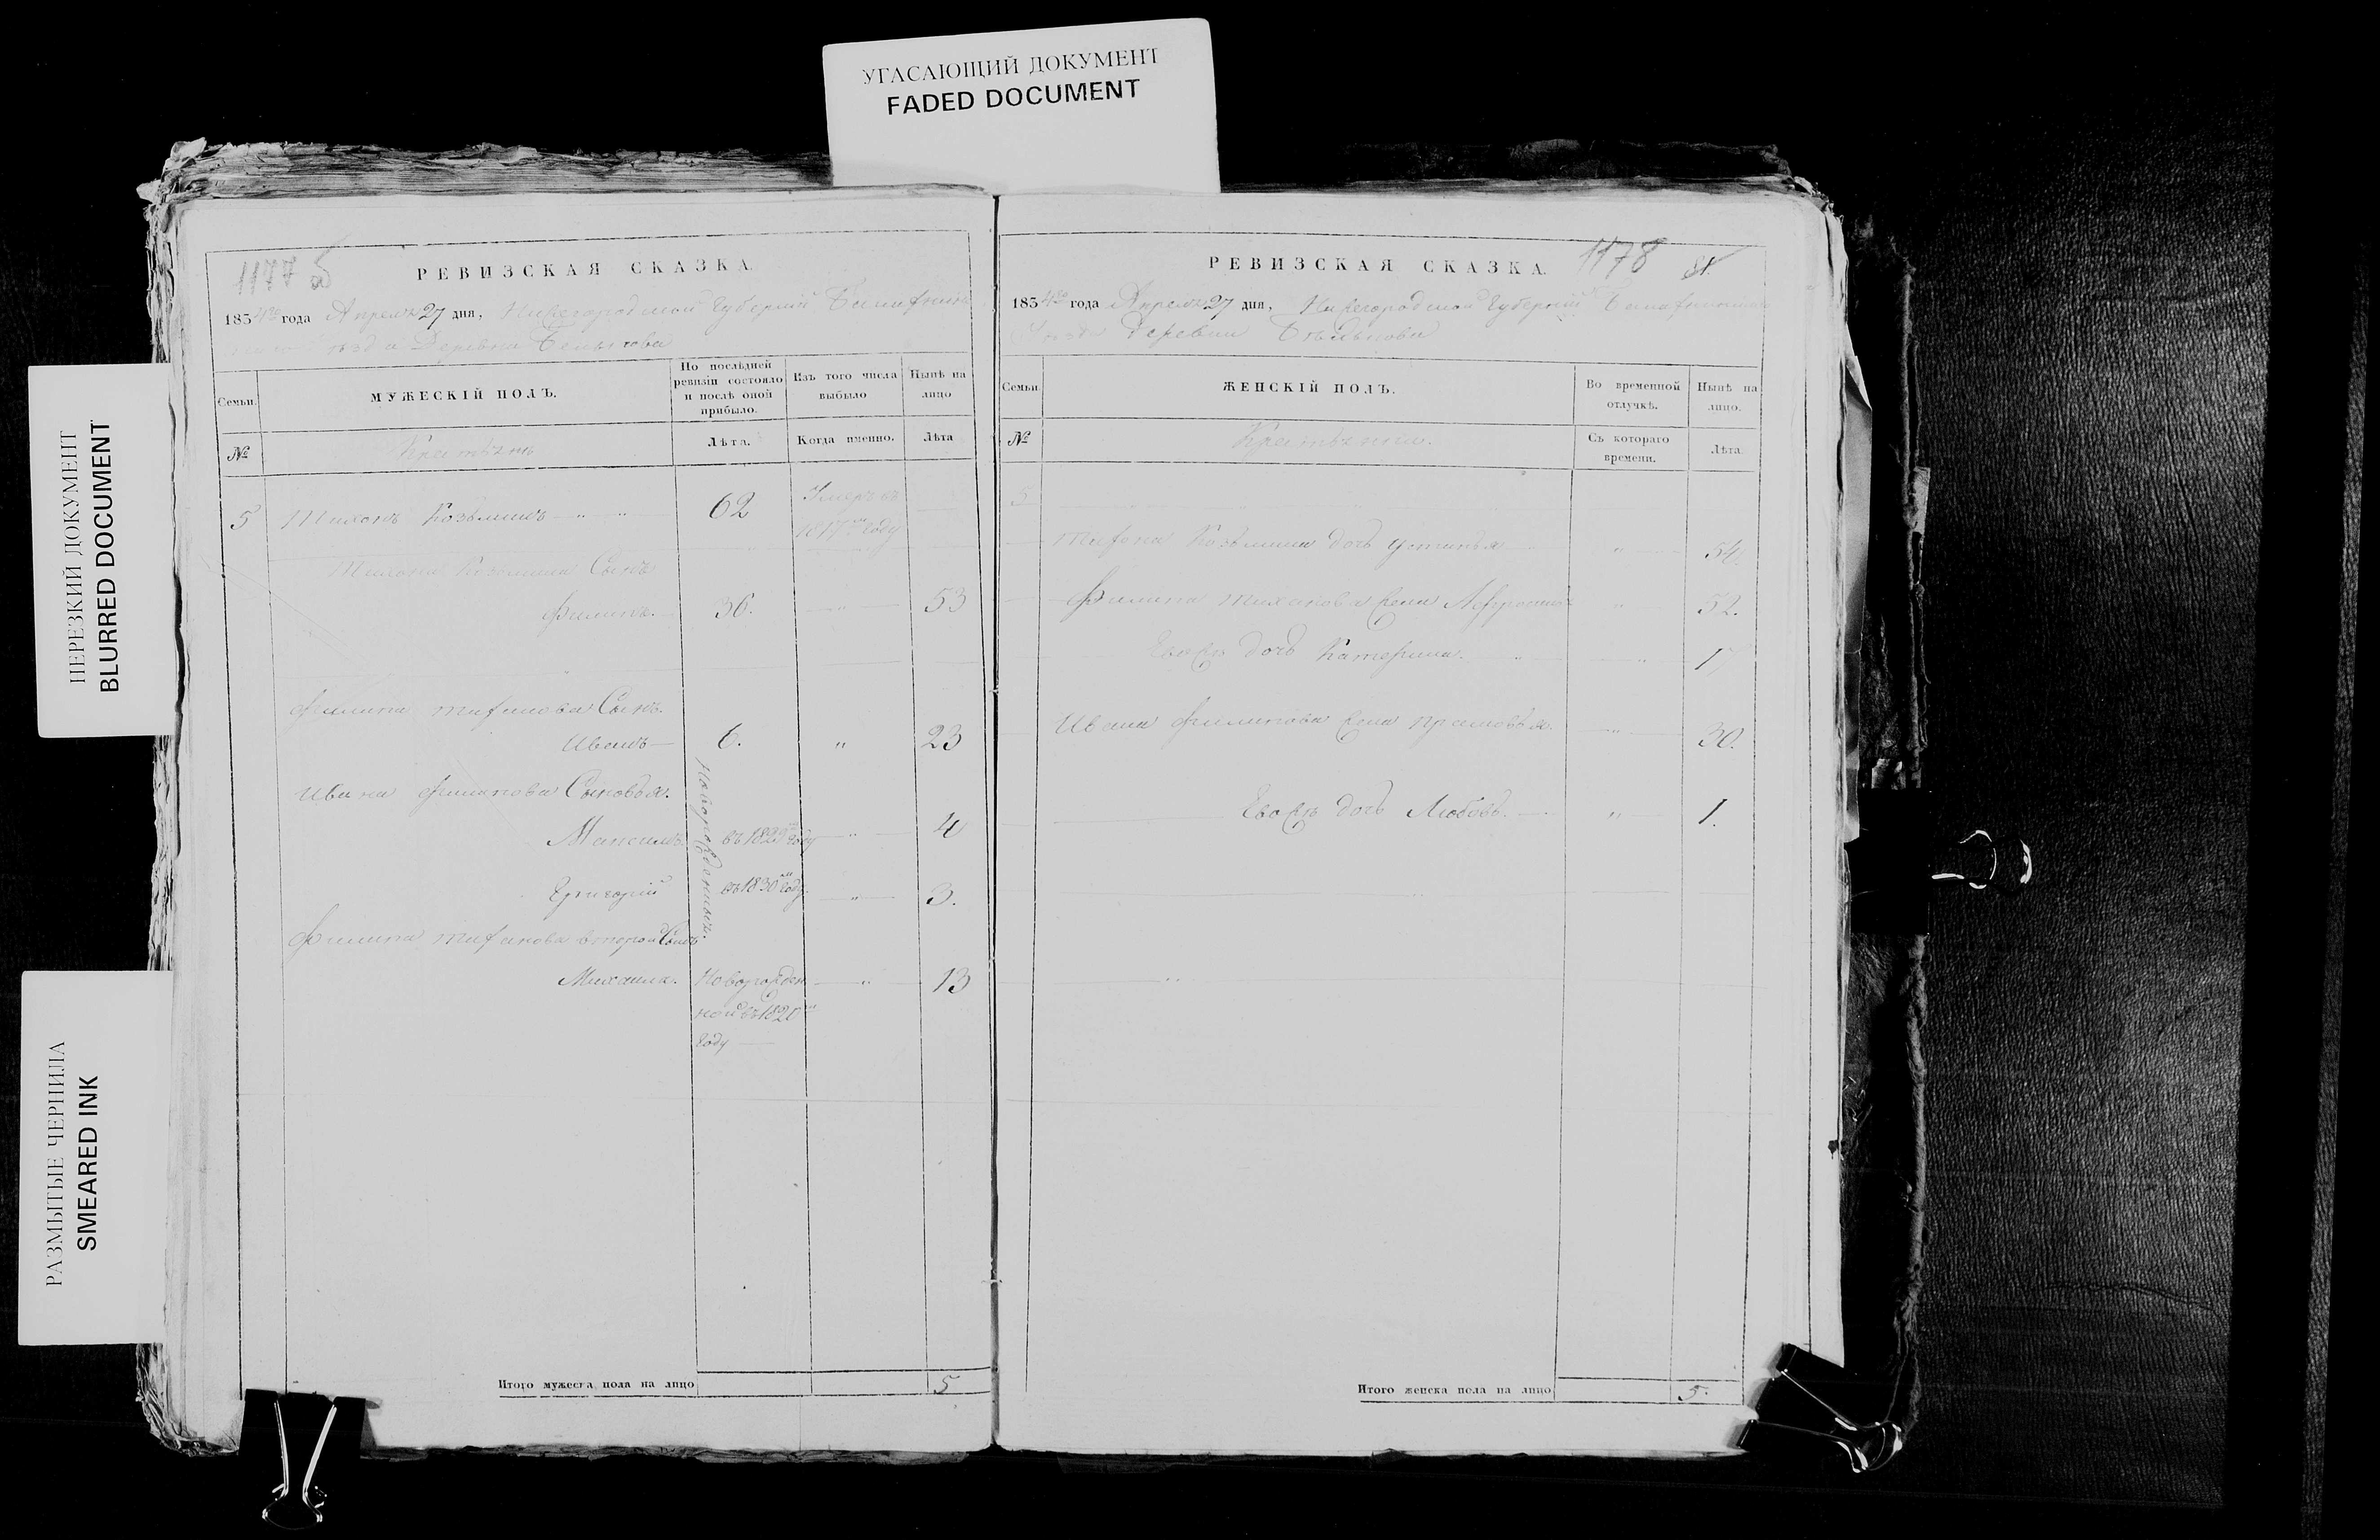 УГАСАЮЩИЙ ДОКУМЕНТ
FADED DOCUMENT
НЕРЕЗКИЙ ДОКУМЕНТ
BLURRED DOCUMENT
РАЗМЫТЫЕ ЧЕРНИЛА
SMEARED INK
1177
РЕВИЗСКАЯ СКАЗКА.
1834го года Апреля 27 дня, Нижегородской Губернии
Деревни
Семьи.
МУЖЕСКІЙ ПОЛЪ.
По послѣдней ревизіи состояло и послѣ оной прибыло.
Изъ того числа выбыло
Нынѣ на лицо
№
Лѣта.
Когда именно.
Лѣта
5 Тихонъ Козьминъ 62 Умеръ въ
1817м году
Тихона Козмина Сынъ
Филипъ. 36. 53
Филипа Тихонова Сынъ.
Иванъ 6. " 23
Ивана Филипова Сыновья.
Новорожденныи.
Максимъ. въ 1829м году " 4
Григорій въ 1830м году. " 3.
Филипа Тихонова второй Сынъ
Михаила. Новорожден " 13
ной въ 1820м
году
Итого мужеска пола на лицо 5
1178
РЕВИЗСКАЯ СКАЗКА.
1834го года Апреля 27 дня, Нижегородской Губерніи
Деревни
Семьи.
ЖЕНСКІЙ ПОЛЪ.
Во временной отлучкѣ.
Нынѣ на лицо.
№
Съ котораго времени.
Лѣта
5
Тихона Козьмина дочь Устинья " 54.
Филипа Тихонова жена " 52.
Евожъ дочь Катерина. " 17
Ивана Филипова жена " 30.
Евожъ дочь Любовь. " 1.
Итого женска пола на лицо 5.